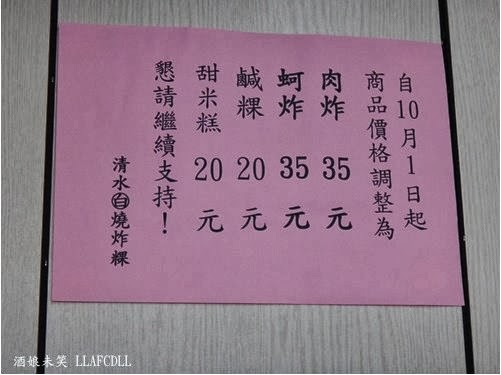 自10月1日起
商品價格調整為
肉炸 35 元
蚵炸 35 元
鹹粿 20 元
甜米糕 20 元
懇請繼續支持！
清水㊂燒炸粿
酒娘未笑 LLAFCDLL